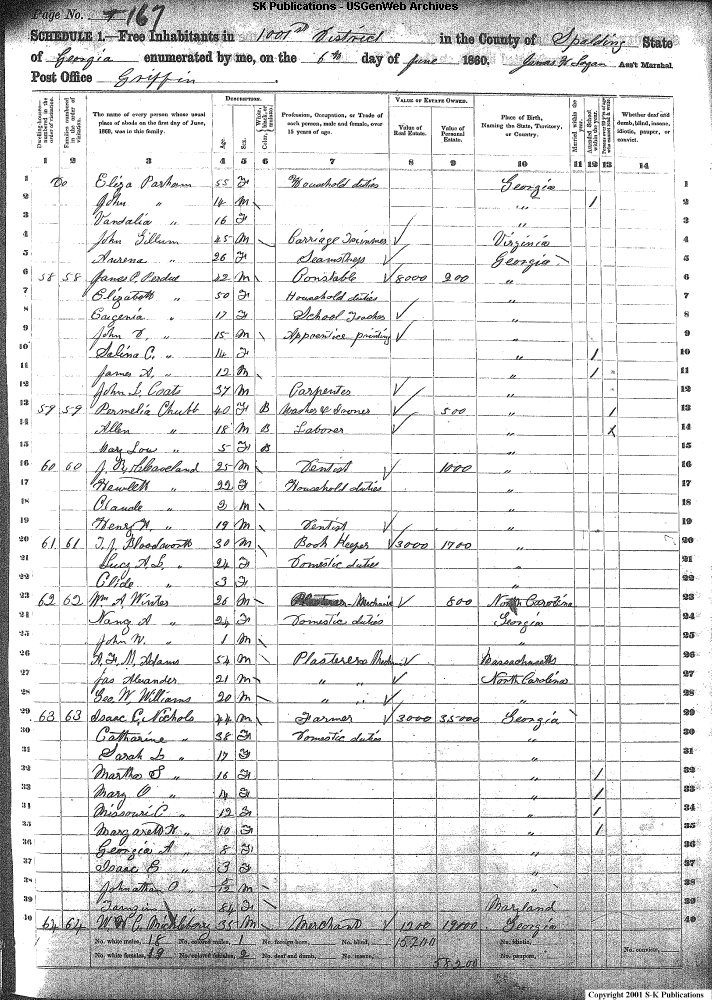 SK Publications - USGenWeb Archives
Page No. 167
SCHEDULE 1.—Free Inhabitants in 1001st District in the County of Spalding State
of Georgia enumerated by me, on the 6th day of June 1860. Ass't Marshal.
Post Office Griffin.
DESCRIPTION. VALUE OF ESTATE OWNED.
Dwelling-houses— numbered in the order of visitation. Families numbered in the order of visitation. The name of every person whose usual place of abode on the first day of June, 1860, was in this family. Age. Sex. Color, White, black, or mulatto. Profession, Occupation, or Trade of each person, male and female, over 15 years of age. Value of Real Estate. Value of Personal Estate. Place of Birth, Naming the State, Territory, or Country. Married within the year. Attended School within the year. Whether deaf and dumb, blind, insane, idiotic, pauper, or convict.
1 2 3 4 5 6 7 8 9 10 11 12 13 14
1 Do Eliza Parham 55 F Household duties Georgia 1
2 John " 14 M " / 2
3 Vandalia " 16 F " 3
4 John Gillum 45 M Carriage Trimmer Virginia 4
5 26 F Seamstress Georgia 5
6 58 58 James P. Perdue 42 M Constable 8000 200 " 6
7 Elizabeth " 50 F Household duties " 7
8 Eugenia " 17 F School Teacher " 8
9 John " 15 M Apprentice printing " 9
10 Salina C. " 14 F " / 10
11 James A. " 12 M " / 11
12 John L. Coats 37 M Carpenter " 12
13 59 59 Permelia Chubb 40 F B Washer & Ironer 500 " / 13
14 Allen " 18 M B Laborer " X 14
15 Mary Lou " 5 F B " 15
16 60 60 J. R. Cleaveland 25 M Dentist 1000 " 16
17 " 22 F Household duties " 17
18 Claude " 2 M " 18
19 Henry " 19 M Dentist " 19
20 61 61 T. J. Bloodworth 30 M Book Keeper 3000 1700 " 20
21 Lucy A. L. " 24 F Domestic duties " 21
22 Clide " 3 F " 22
23 62 62 Wm A. Winter 26 M Mechanic 800 North Carolina 23
24 Nancy A " 24 F Domestic duties Georgia 24
25 John W. " 1 M " 25
26 Adams 54 M Plasterers Massachusetts 26
27 Jas Alexander 21 M " " North Carolina 27
28 Geo. W Williams 20 M " " " 28
29 63 63 Isaac C. Nichols 44 M Farmer 3000 35000 Georgia 29
30 Catharine " 38 F Domestic duties " 30
31 Sarah " 17 F " 31
32 Martha S " 16 F " / 32
33 Mary O " 14 F " / 33
34 Missouri C " 12 F " / 34
35 Margarett " 10 F " / 35
36 Georgia A " 8 F " 36
37 Isaac " 3 " 37
38 Johnathan O " /12 M " 38
39 84 F Maryland 39
40 64 64 W. H. C. Mickleberry 35 M Merchant 1200 19000 Georgia 40
No. white males, 18 No. colored males, 1 No. foreign born, No. blind, 15200 No. idiotic, No. convicts,
No. white females, 19 No. colored females, 2 No. deaf and dumb, No. insane, 58200 No. paupers,
Copyright 2001 S-K Publications